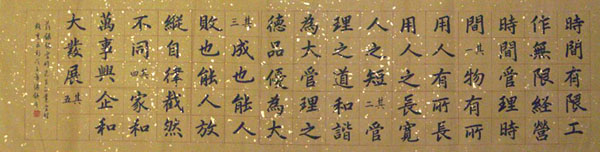 時間有限工
作無限經營
時間管理時
間其一物有所
用人有所長
用人之長寬
人之短其二管
理之道和諧
為大管理之
德品優為大
其三成也能人
敗也能人放
縱自律截然
不同其四家和
萬事興企和
大發展其五